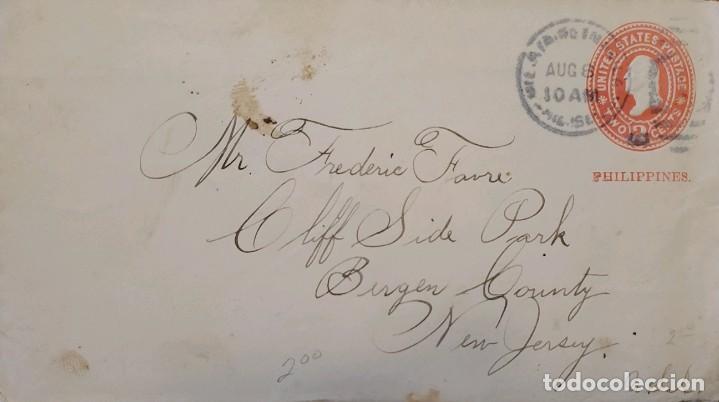 UNITED STATES POSTAGE
TWO CENTS
2
AUG 8
10 AM
PHILIPPINES.
Mr. Frederic Favre
Cliff Side Park
Bergen County
New Jersey.
200
todocoleccion.net